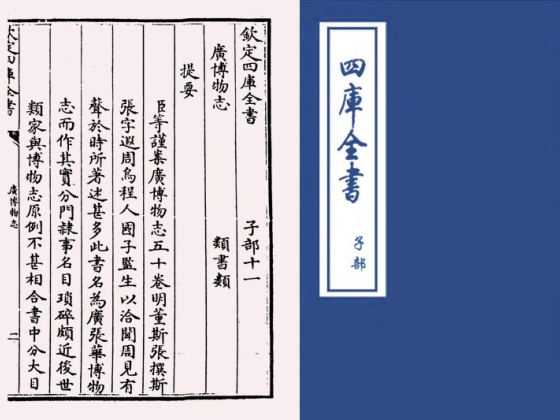 欽定四庫全書
子部十一
廣博物志
類書類
提要
臣等謹案廣博物志五十卷明董斯張撰斯
張字遐周烏程人國子監生以洽聞周見有
聲於時所著述甚多此書名為廣張華博物
志而作其實分門隸事名目瑣碎頗近後世
類家與博物志原例不甚相合書中分大目
欽定四庫全書
廣博物志
二
四庫全書
子部